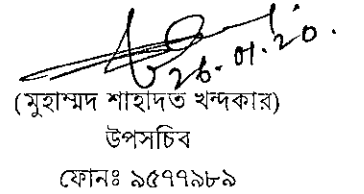 26.01.20.
(মুহাম্মদ শাহাদত খন্দকার)
উপসচিব
ফোনঃ ৯৫৭৭৯৮৯